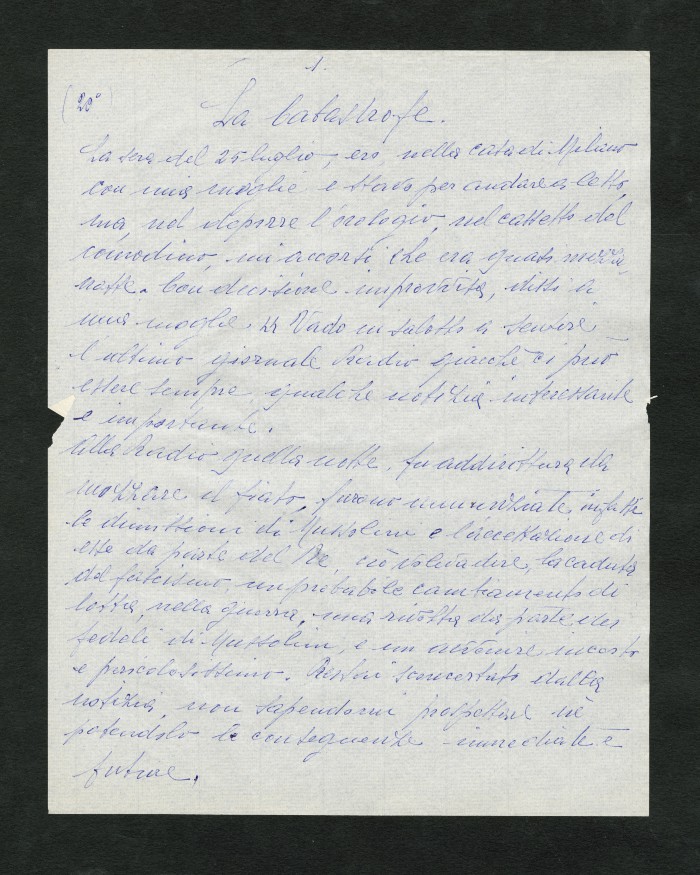 1.
(20°)
La Catastrofe.
La sera del 25 luglio, ero nella casa di Milano
con mia moglie e stavo per andare a letto,
ma, nel deporre l'orologio, nel cassetto del
comodino, mi accorsi che era quasi mezza
notte. Con decisione improvvisa, dissi a
mia moglie: Vado in salotto a sentire
l'ultimo giornale Radio giacchè ci può
essere sempre, qualche notizia interessante
e importante.
Alla Radio quella notte, fu addirittura da
mozzare il fiato, furono annunziate infatti
le dimissioni di Mussolini e l'accettazione di
esse da parte del Re, ciò voleva dire, la caduta
del fascismo, un probabile cambiamento di
rotta, nella guerra, una rivolta da parte dei
fedeli di Mussolini, e un avvenire incerto
e pericolosissimo. Restai sconcertato dalla
notizia, non sapendomi prospettare nè
potendolo le conseguenze immediate e
future.